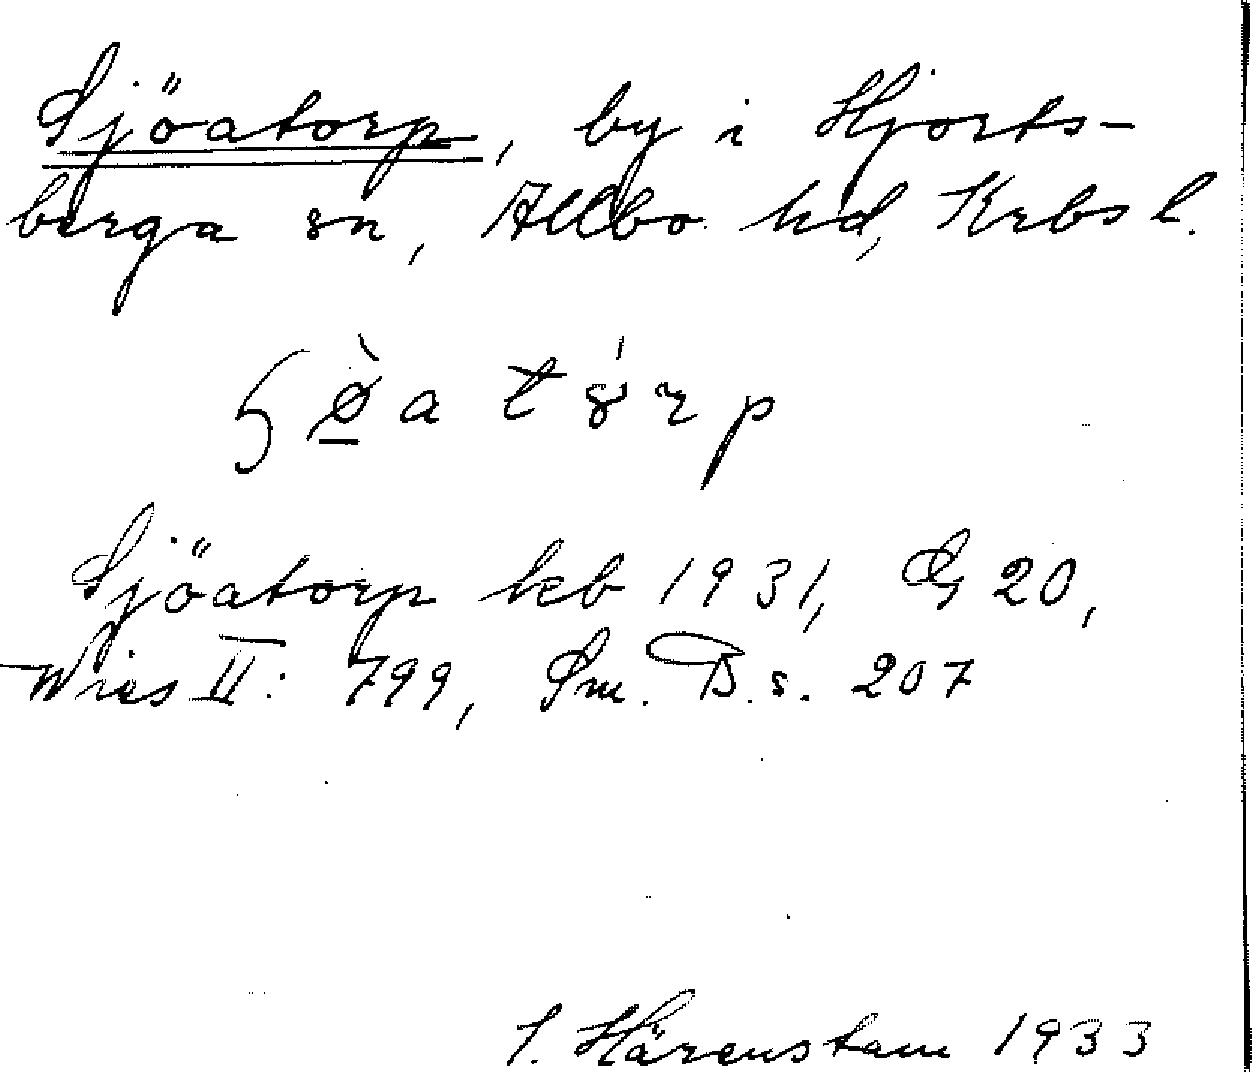 Sjöatorp, by i Hjorts-
berga sn, Allbo hd, Krbs l.
Sjöatorp keb 1931, G 20,
Wies II: 799, Sm. B. s. 207
S. Härenstam 1933